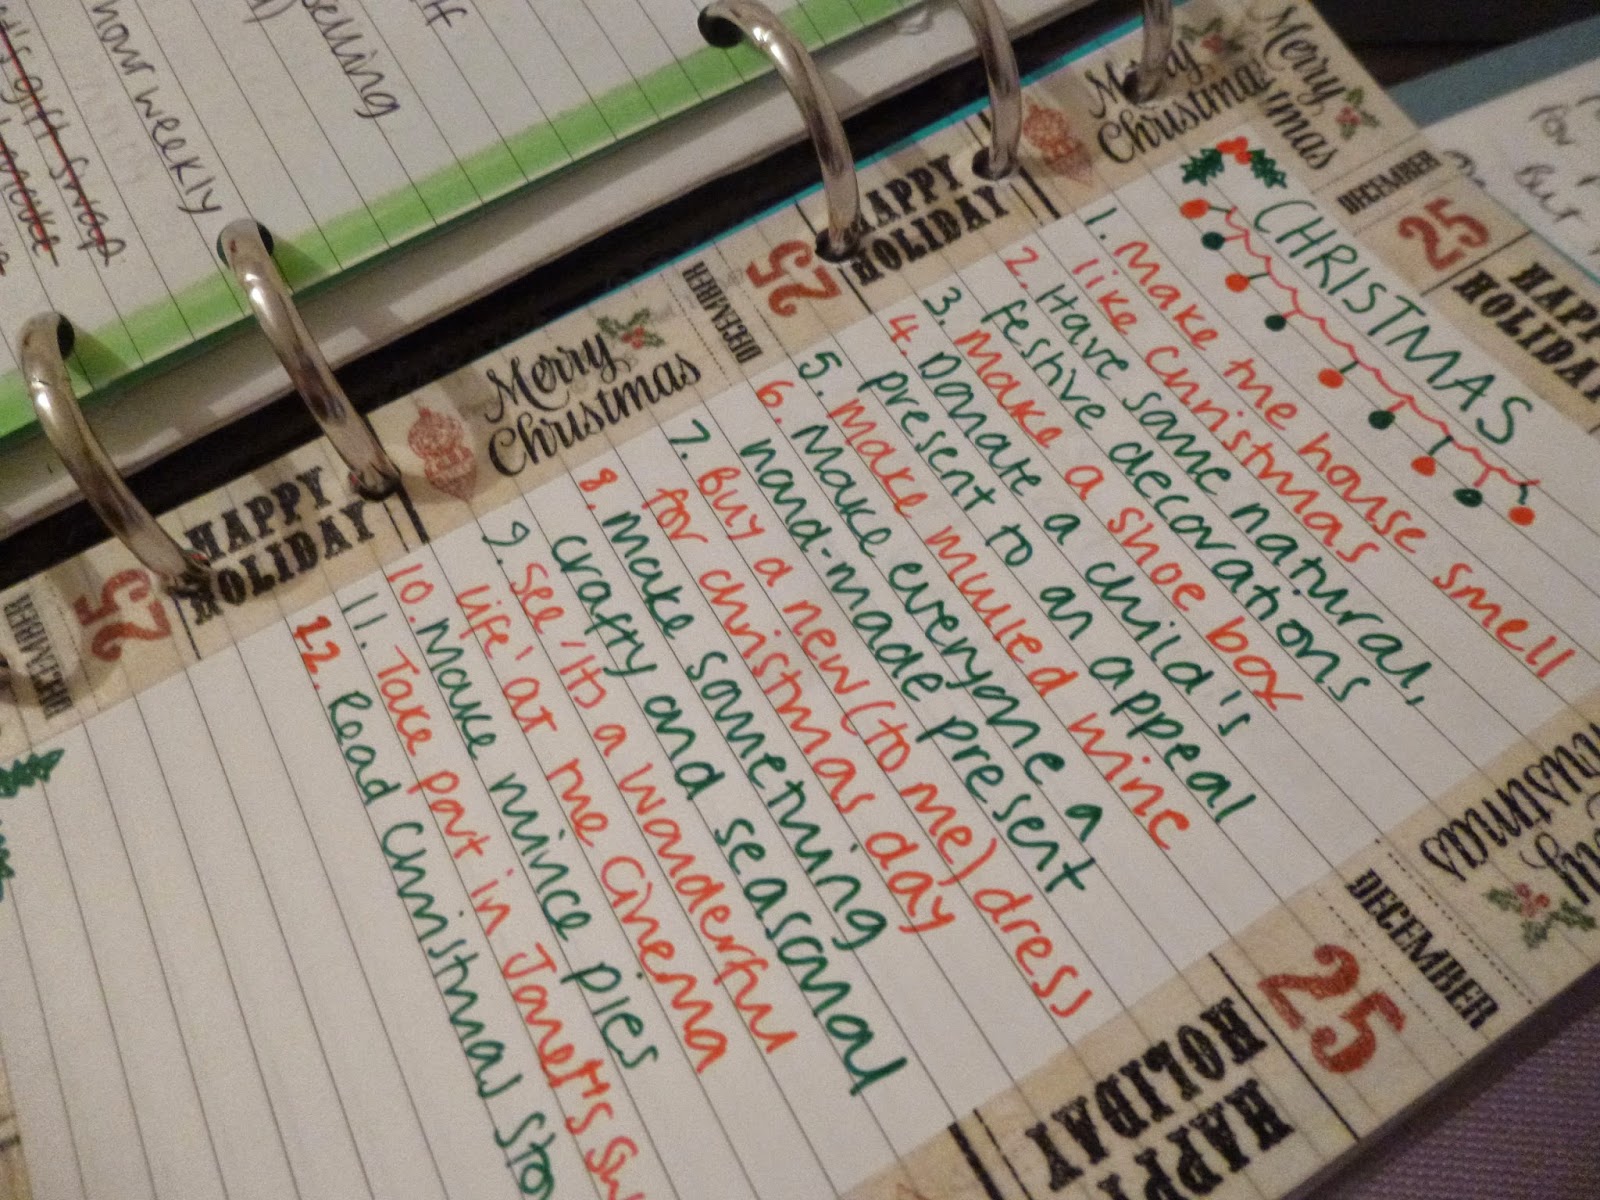 elf
spelling
hour weekly
's gift swap
CHRISTMAS
1. Make the house smell
like Christmas
2. Have some natural,
festive decorations
3. Make a shoe box
4. Donate a child's
present to an appeal
5. Make mulled wine
6. Make everyone a
hand-made present
7. Buy a new (to me) dress
for christmas day
8. Make something
crafty and seasonal
9. See 'Its a wonderful
life' at the Cinema
10. Make mince pies
11. Take part in Janet's Sw
12. Read Christmas Sto
Merry
Christmas
DECEMBER
25
HAPPY
HOLIDAY
Merry
Christmas
HAPPY
HOLIDAY
25
DECEMBER
Merry
Christmas
HAPPY
HOLIDAY
25
DECEMBER
Merry
Christmas
DECEMBER
25
HAPPY
HOLIDAY
for
But